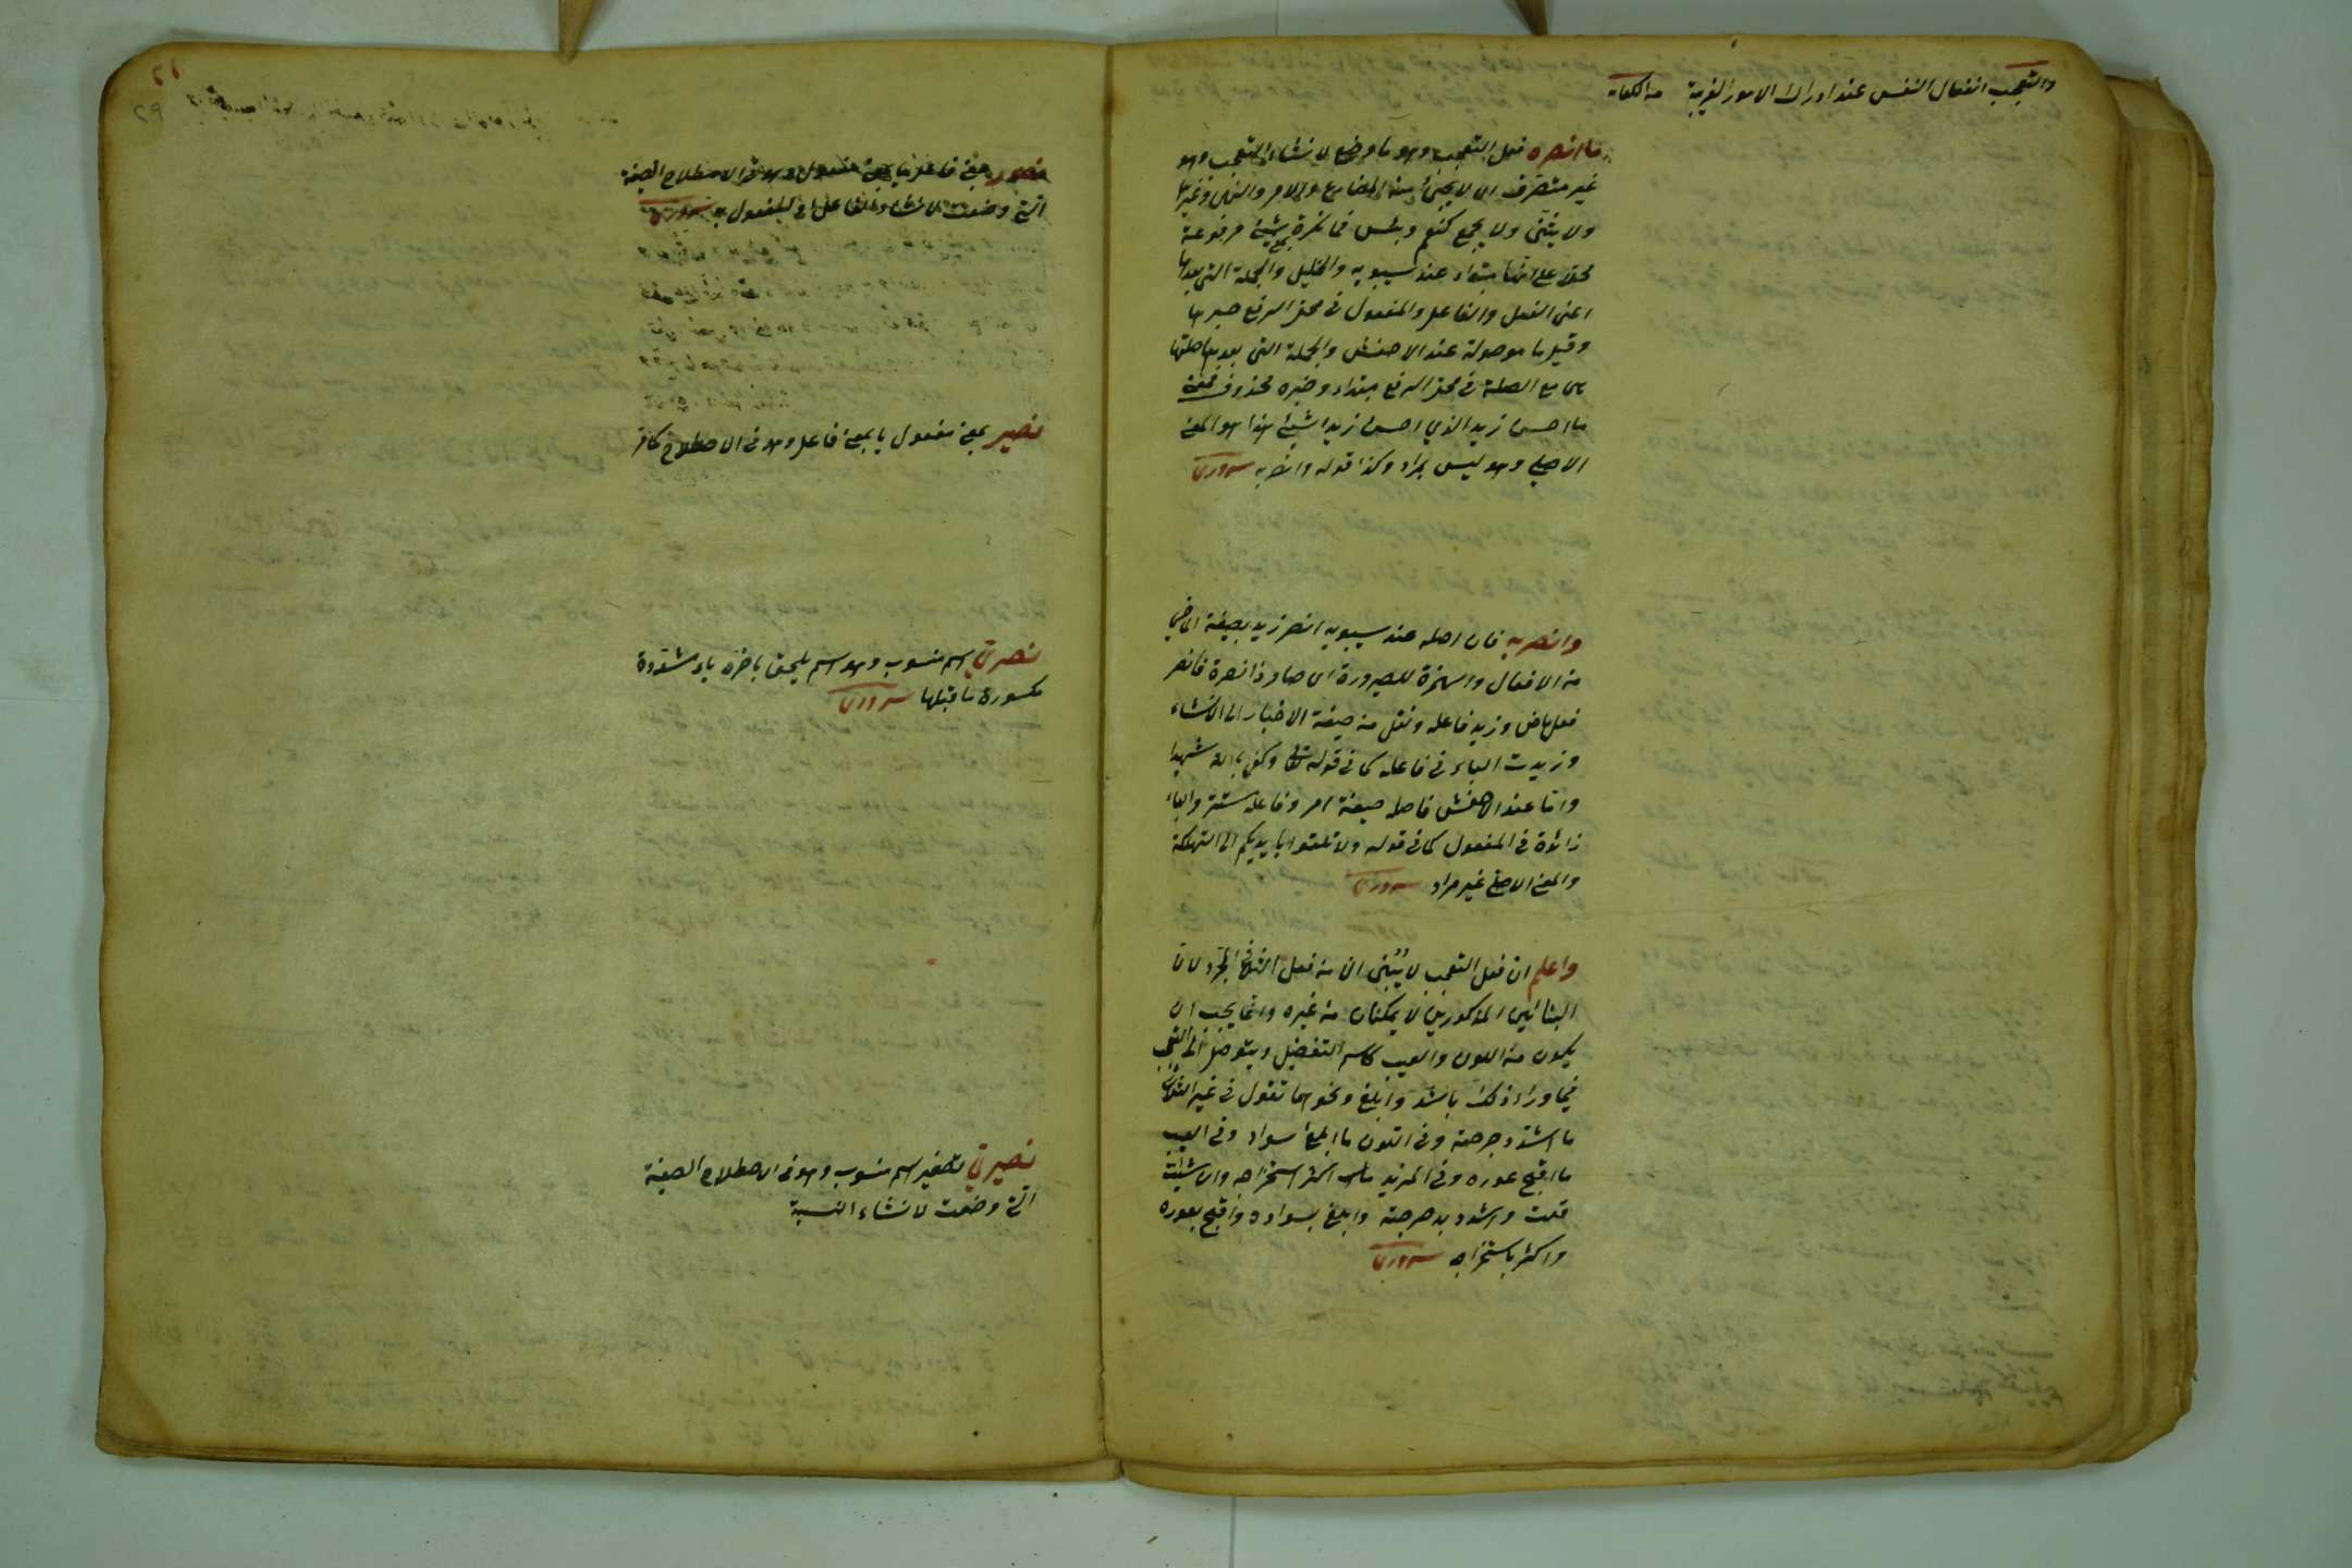 والتعجب انفعال النفس عند ادراك الامور الغريبة
ما انصره فعل التعجب وهو ما وضع لانشاء التعجب وهو
غير متصرف اى لا يجئ منه المضارع والامر والنهى وغيرها
ولا يثنى ولا يجمع كنعم وبئس فما نكرة بمعنى شيئ مرفوعة
محلا على انها مبتداء عند سيبويه والخليل والجملة التى بعدها
اعنى الفعل والفاعل والمفعول فى محل الرفع خبرها
وقيل ما موصولة عند الاخفش والجملة التى بعدها صلتها
مع الصلة فى محل الرفع مبتداء وخبره محذوف فمعنى
ما احسن زيد الذي احسن زيدا شيئ هذا هو المعنى
الاصلى وهو ليس بمراد وكذا قوله وانصر به سرورى
وانصر به فان اصله عند سيبويه انصر زيد بصيغة الماضى
من الافعال والهمزة للصيرورة اى صار ذا نصرة فانصر
فعل ماض وزيد فاعله ونقل من صيغة الاخبار الى الانشاء
وزيدت الباء فى فاعله كما فى قوله تعالى وكفى بالله شهيدا
واما عند الاخفش فاصله صيغة امر وفاعله مستتر والباء
زائدة فى المفعول كما فى قوله ولا تلقوا بايديكم الى التهلكة
والمعنى الاصلى غير مراد سرورى
واعلم ان فعل التعجب لا يبنى الا من فعل الثلاثى المجرد لان
البنائين المذكورين لا يمكنان من غيره وانما يجب ان
يكون منه اللون والعيب كاسم التفضيل ويتوصل الى التعجب
فيما وراء ذلك باشد وابلغ ونحوهما تقول فى غير الثلاثى
ما اشد دحرجته وفى اللون ما ابلغ سواده وفى العيب
ما اقبح عوره وفى المزيد ما اكثر استخراجه وان شئت
قلت واشدد بدحرجته وابلغ بسواده واقبح بعوره
واكثر باستخراجه سرورى
نصور بمعنى فاعل يا بمعنى مفعول وهو فى الاصطلاح الصيغة
التى وضعت لانشاء الفاعل او للمفعول سرورى
نصير بمعنى مفعول يا بمعنى فاعل وهو فى الاصطلاح كما مر
نصرى اسم منسوب وهو اسم يلحق باخره ياء مشددة
مكسورة ما قبلها سرورى
نصيرى تصغير اسم منسوب وهو فى الاصطلاح الصيغة
التى وضعت لانشاء النسبة